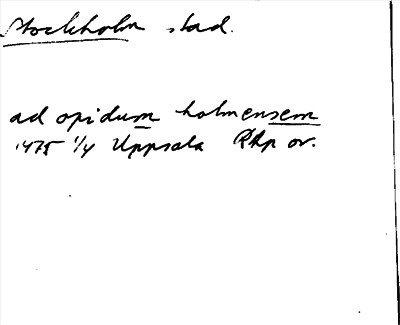 Stockholm stad.
ad opidum holmensem
1475 1/4 Uppsala RAp or.